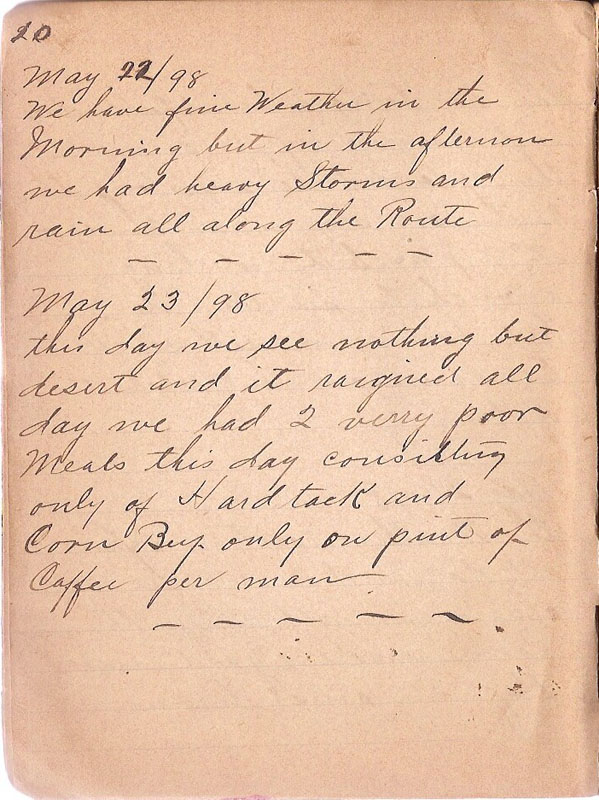 20
May 22/98
We have fine Weather in the
Morning but in the afternoon
we had heavy Storms and
rain all along the Route
— — — — —
May 23/98
this day we see nothing but
desert and it raigned all
day we had 2 verry poor
Meals this day consisting
only of Hard tack and
Corn Beef only on pint of
Caffee per man
— — — — —